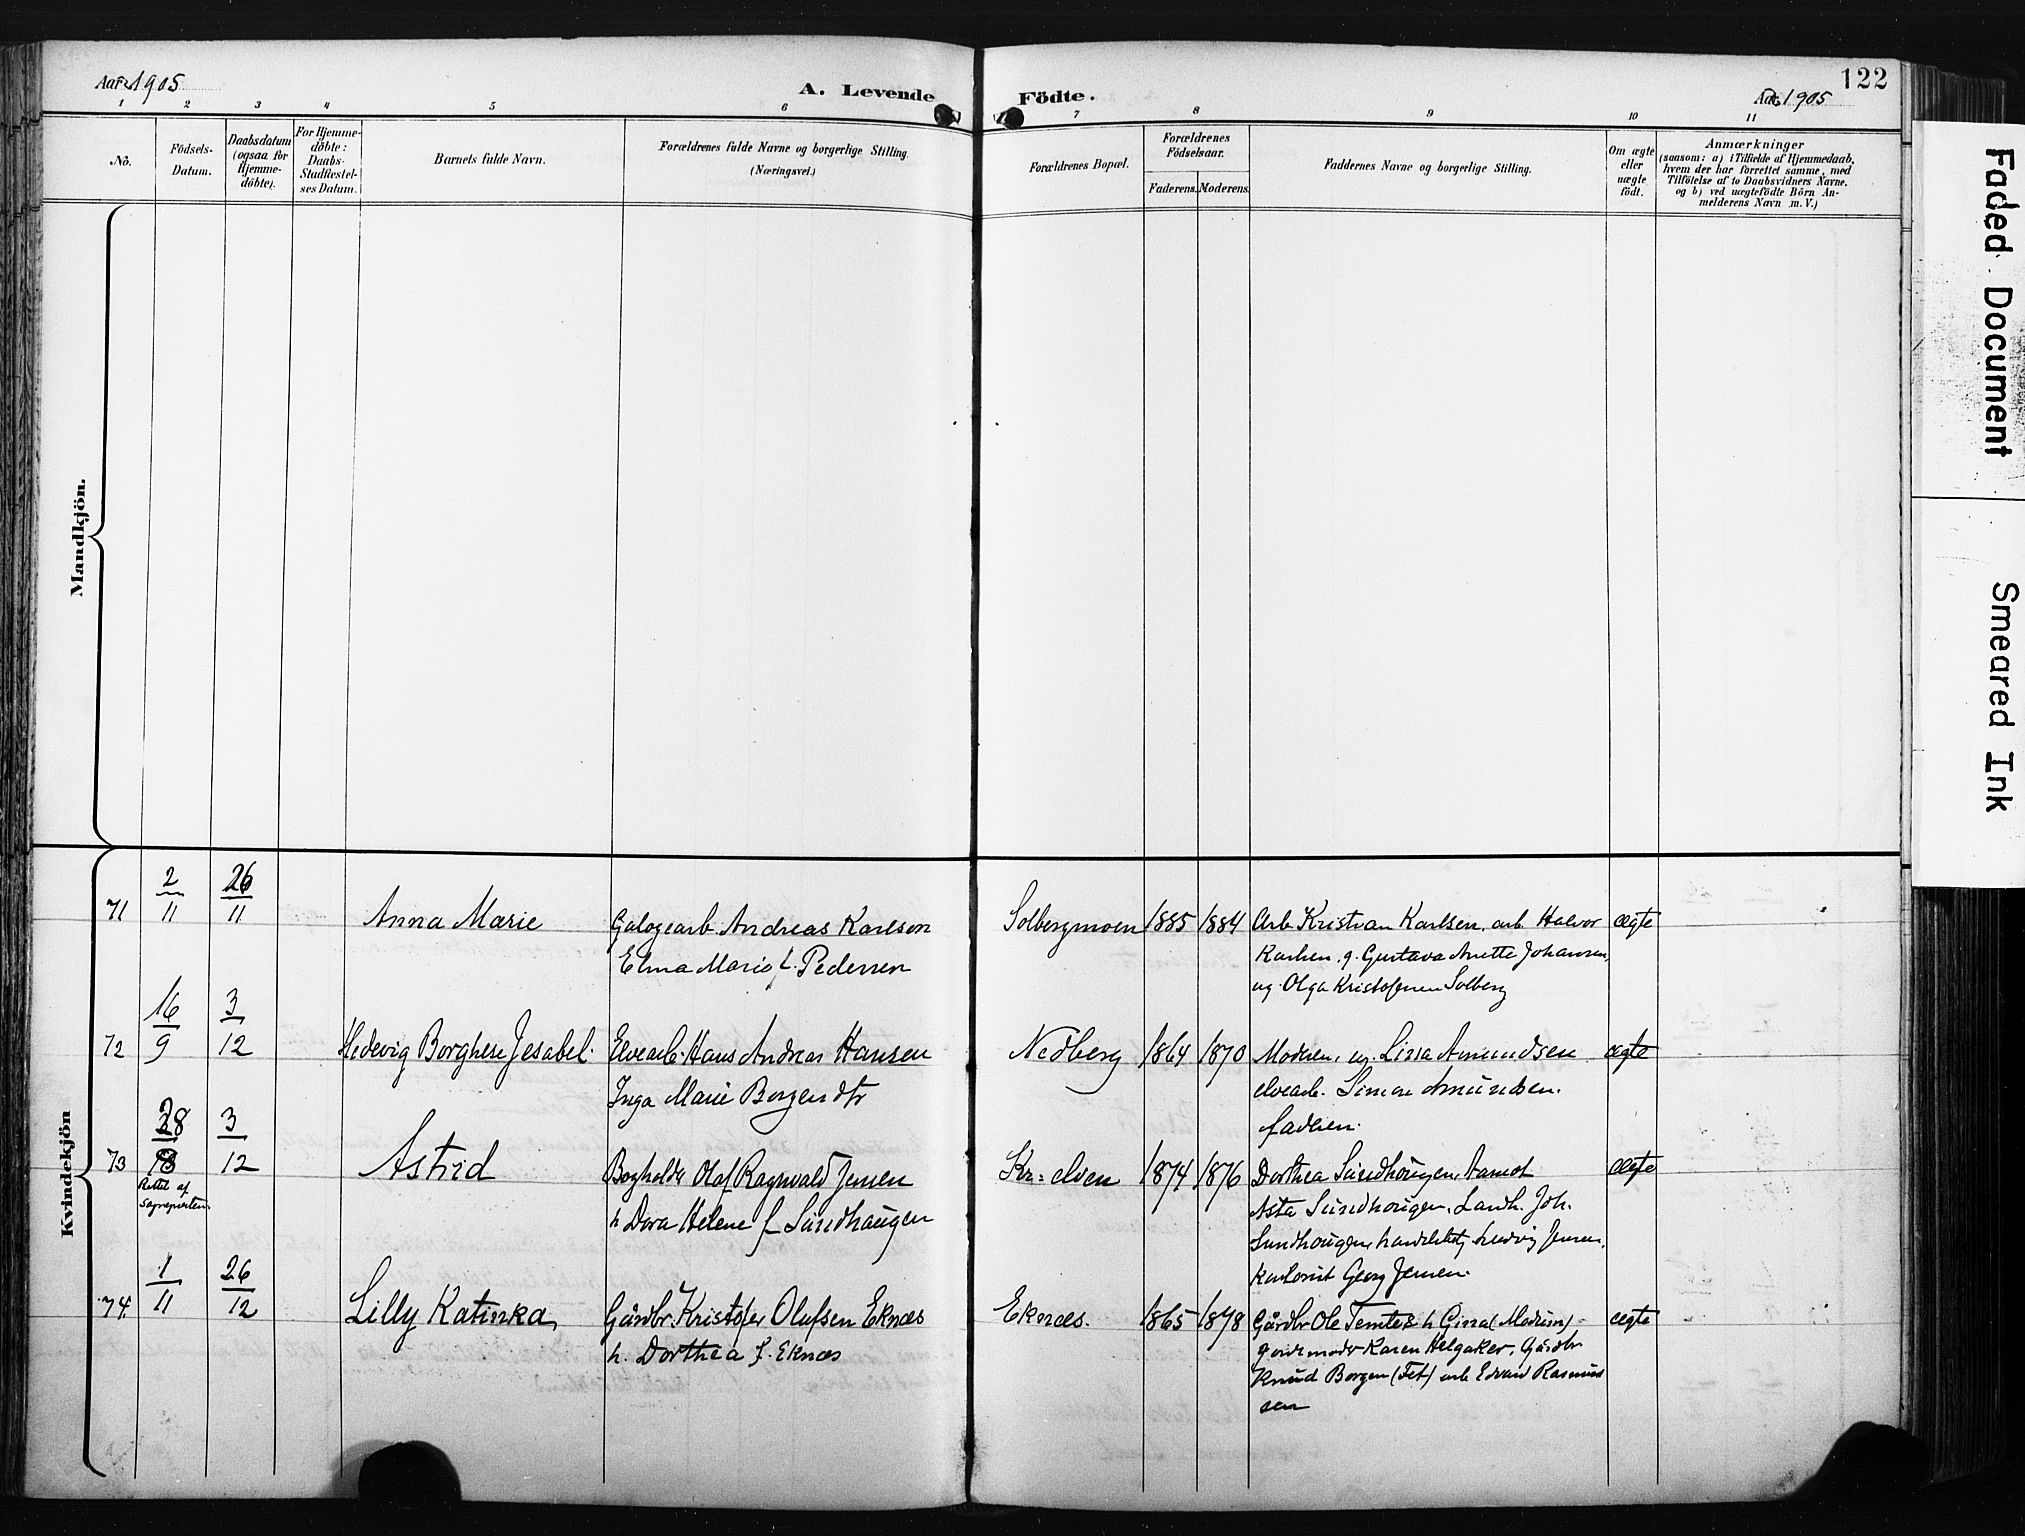 Aar 1905
A. Levende
Födte.
Aar 1905
122
1 2 3 4 5 6 7 8 9 10 11
No.
Födsels-
Datum.
Daabsdatum
(ogsaa for
Hjemme-
döbte).
For Hjemme-
döbte:
Daabs-
Stadfæstel-
ses Datum.
Barnets fulde Navn.
Forældrenes fulde Navne og borgerlige Stilling.
(Næringsvei.)
Forældrenes Bopæl.
Forældrenes
Födselsaar.
Faderens.
Moderens.
Faddernes Navne og borgerlige Stilling.
Om ægte
eller
uægte
födt.
Anmærkninger
(saasom: a) i Tilfælde af Hjemmedaab,
hvem der har forrettet samme, med
Tilföielse af to Daabsvidners Navne.
og b) ved uægtefödte Börn An-
melderens Navn m. V.)
Mandkjön.
Kvindekjön
71
2
11
26
11
Anna Marie
Andreas Karlsen
Elma Marie f. Pedersen
Solbergmoen
1885
1884
Arb. Kristian Karlsen, arb. Halvor
Karlsen, g. Gustava Anette Johansen,
ug. Olga Kristofersen Solberg
ægte
72
16
9
3
12
Hedevig Borghese Jesabel.
Elvearb. Hans Andreas Hansen
Inga Marie Borgen dtr
Nedberg
1864
1870
Moderen, ug. Lissa Amundsen
elvearb. Simon Amundsen.
faderen.
ægte
73
28
3
12
Astrid
Bogholder Olaf Ragnvald Jensen
h Dora Helene f Sundhaugen
Kr=elven
1874
1876
Dorthea Sundhougen, Aamot
Asta Sundhougen, Landh. Joh.
Sundhougen, Ludvig Jensen,
Georg Jensen.
ægte
74
1
11
26
12
Lilly Katinka
Gårdbr. Kristofer Olafsen Eknæs
h. Dorthea f. Eknæs
Eknæs.
1865
1878
Gårdbr Ole h Gina (Modum)
Karen Helgaker, Gårdbr
Knud Borgen (Fet) arb Edvard Rasmus
sen
ægte
Faded Document
Smeared Ink